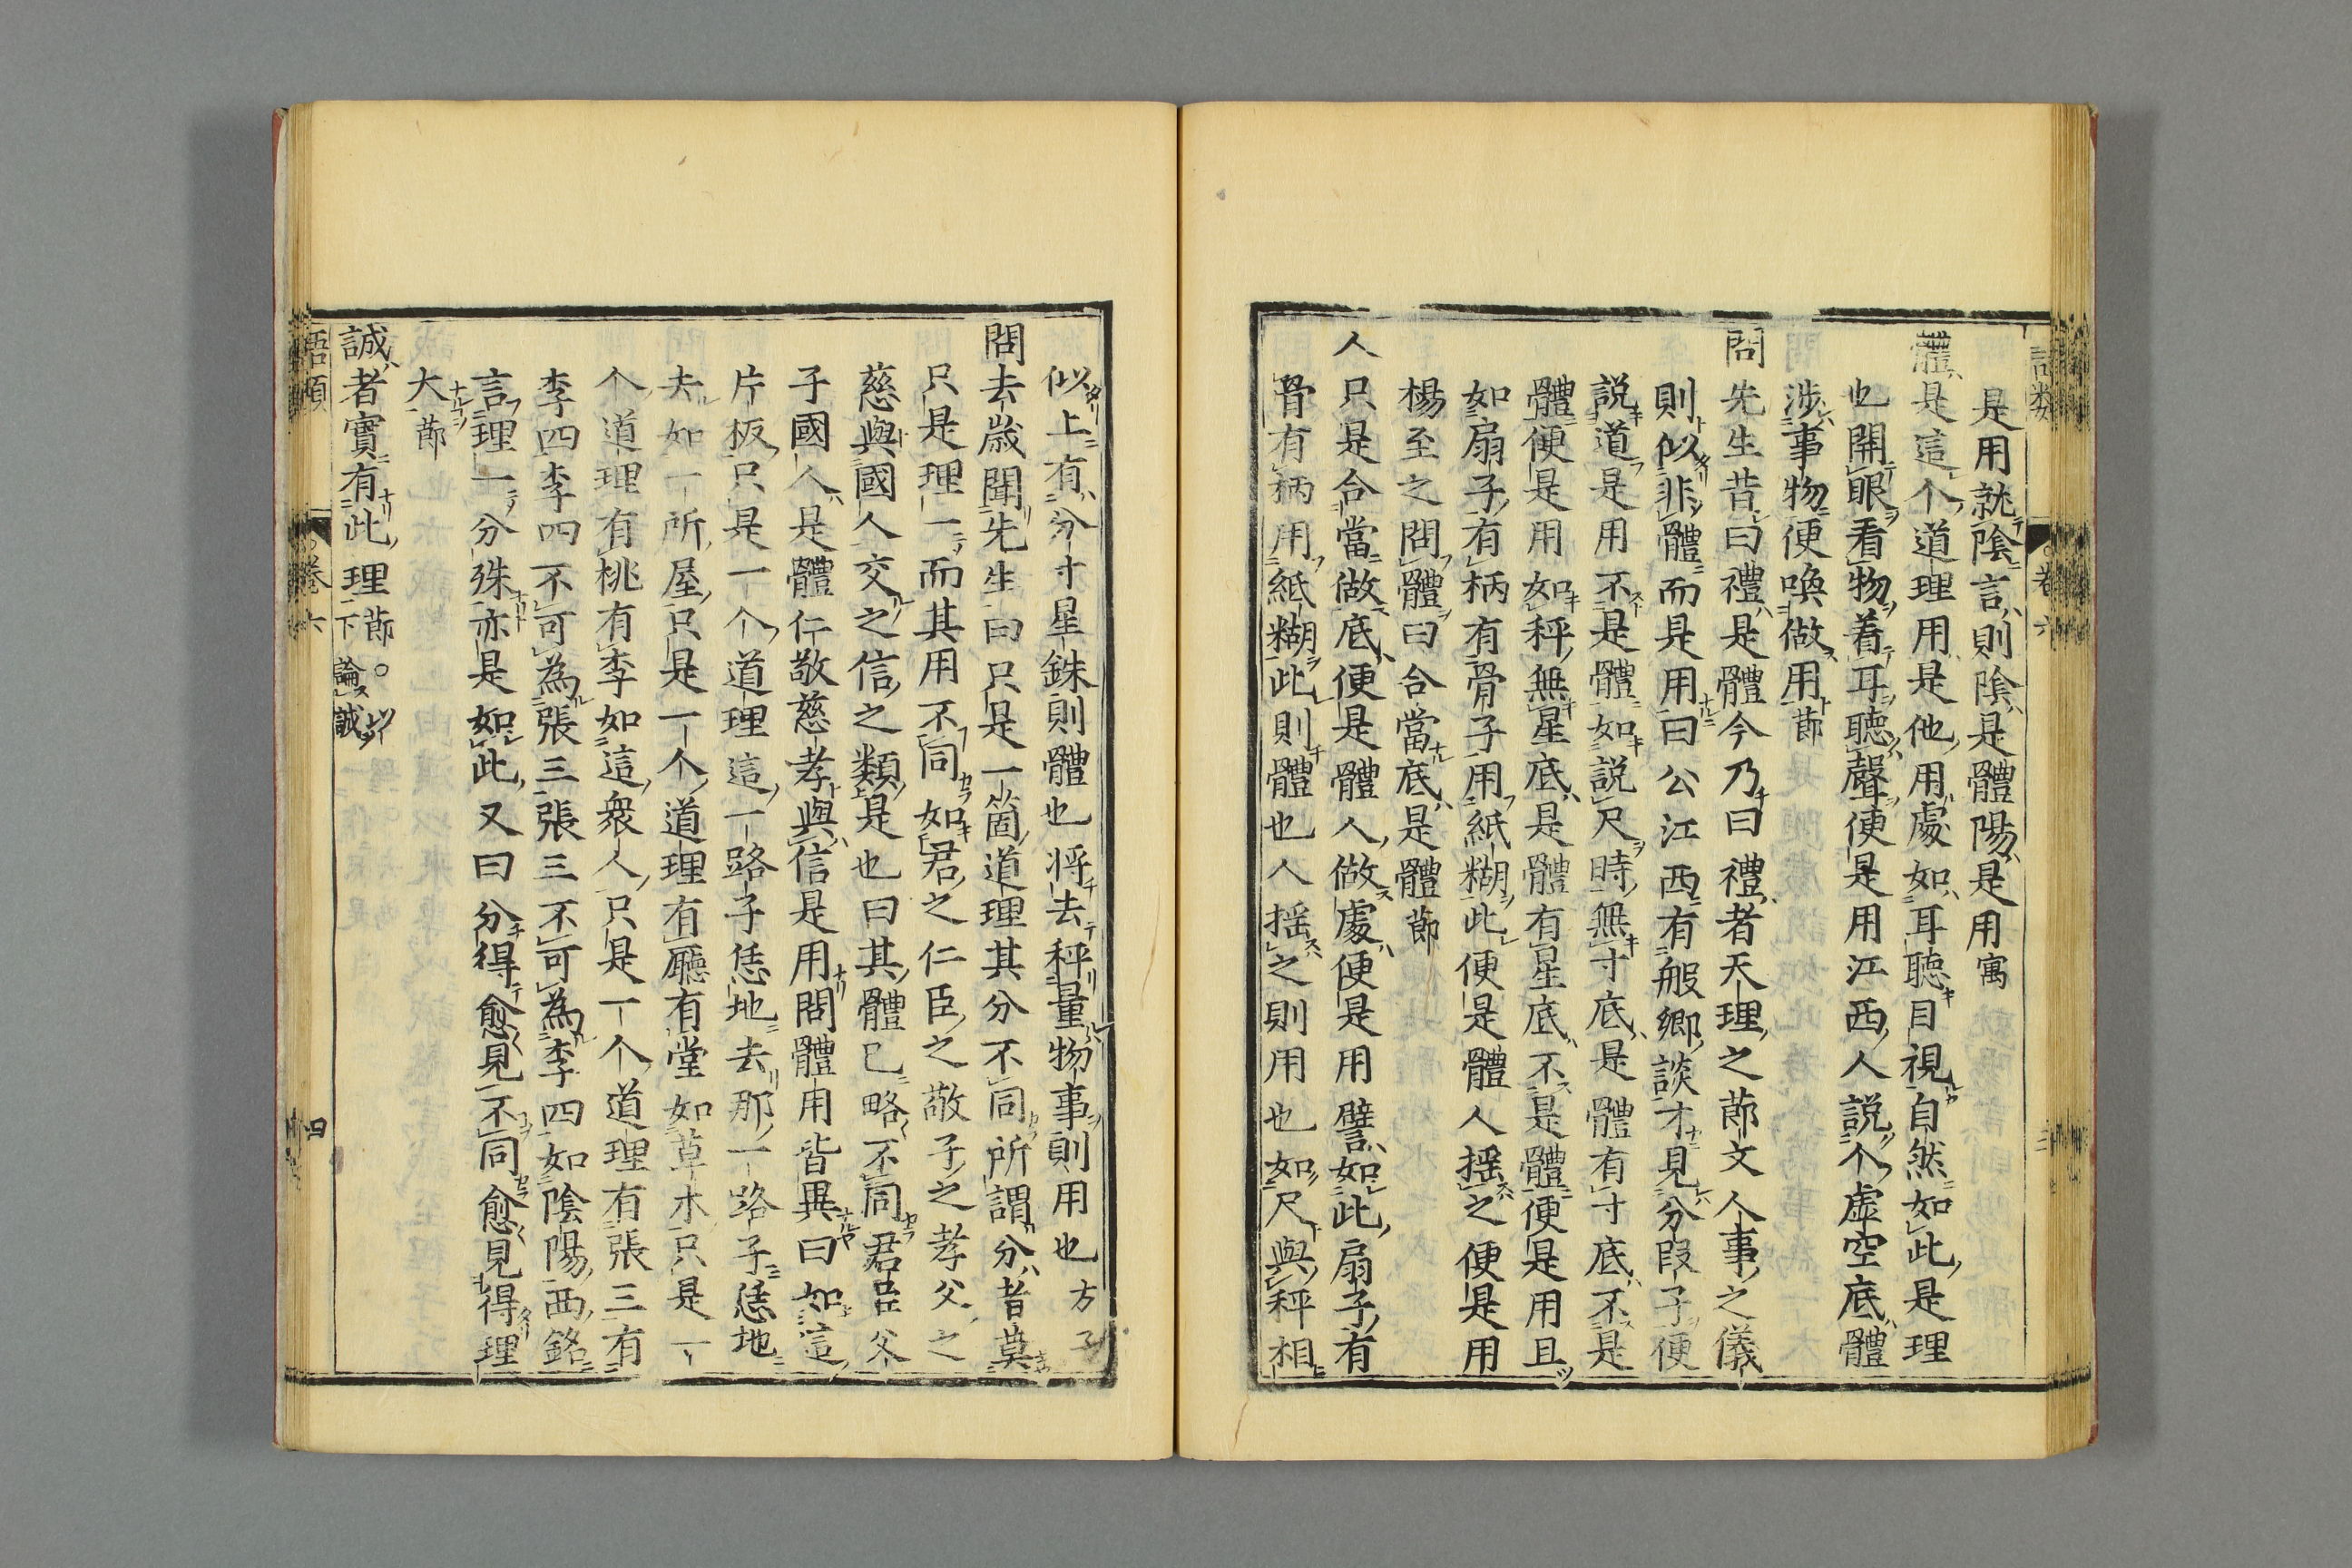 語類 卷六 三
是用就陰言則陰是體陽是用寓
體是這个道理用是他用處如耳聽目視自然如此是理
也開眼看物着耳聽聲便是用江西人説个虛空底體
涉事物便喚做用節
問先生昔曰禮是體今乃曰禮者天理之節文人事之儀
則似非體而是用曰公江西有般鄉談才見分段子便
説道是用不是體如説尺時無寸底是體有寸底不是
體便是用如秤無星底是體有星底不是體便是用且
如扇子有柄有骨子用紙糊此便是體人揺之便是用
楊至之問體曰合當底是體節
人只是合當做底便是體人做處便是用譬如此扇子有
骨有柄用紙糊此則體也人揺之則用也如尺與秤相
似上有分寸星銖則體也将去秤量物事則用也方子
問去歳聞先生曰只是一箇道理其分不同所謂分者莫
只是理一而其用不同如君之仁臣之敬子之孝父之
慈與國人交之信之類是也曰其體已略不同君臣父
子國人是體仁敬慈孝與信是用問體用皆異曰如這
片板只是一个道理這一路子恁地去那一路子恁地
去如一所屋只是一个道理有廳有堂如草木只是一
个道理有桃有李如這衆人只是一个道理有張三有
李四李四不可為張三張三不可為李四如陰陽西銘
言理一分殊亦是如此又曰分得愈見不同愈見得理
大節
誠者實有此理節○以下論誠
語類 卷六 四